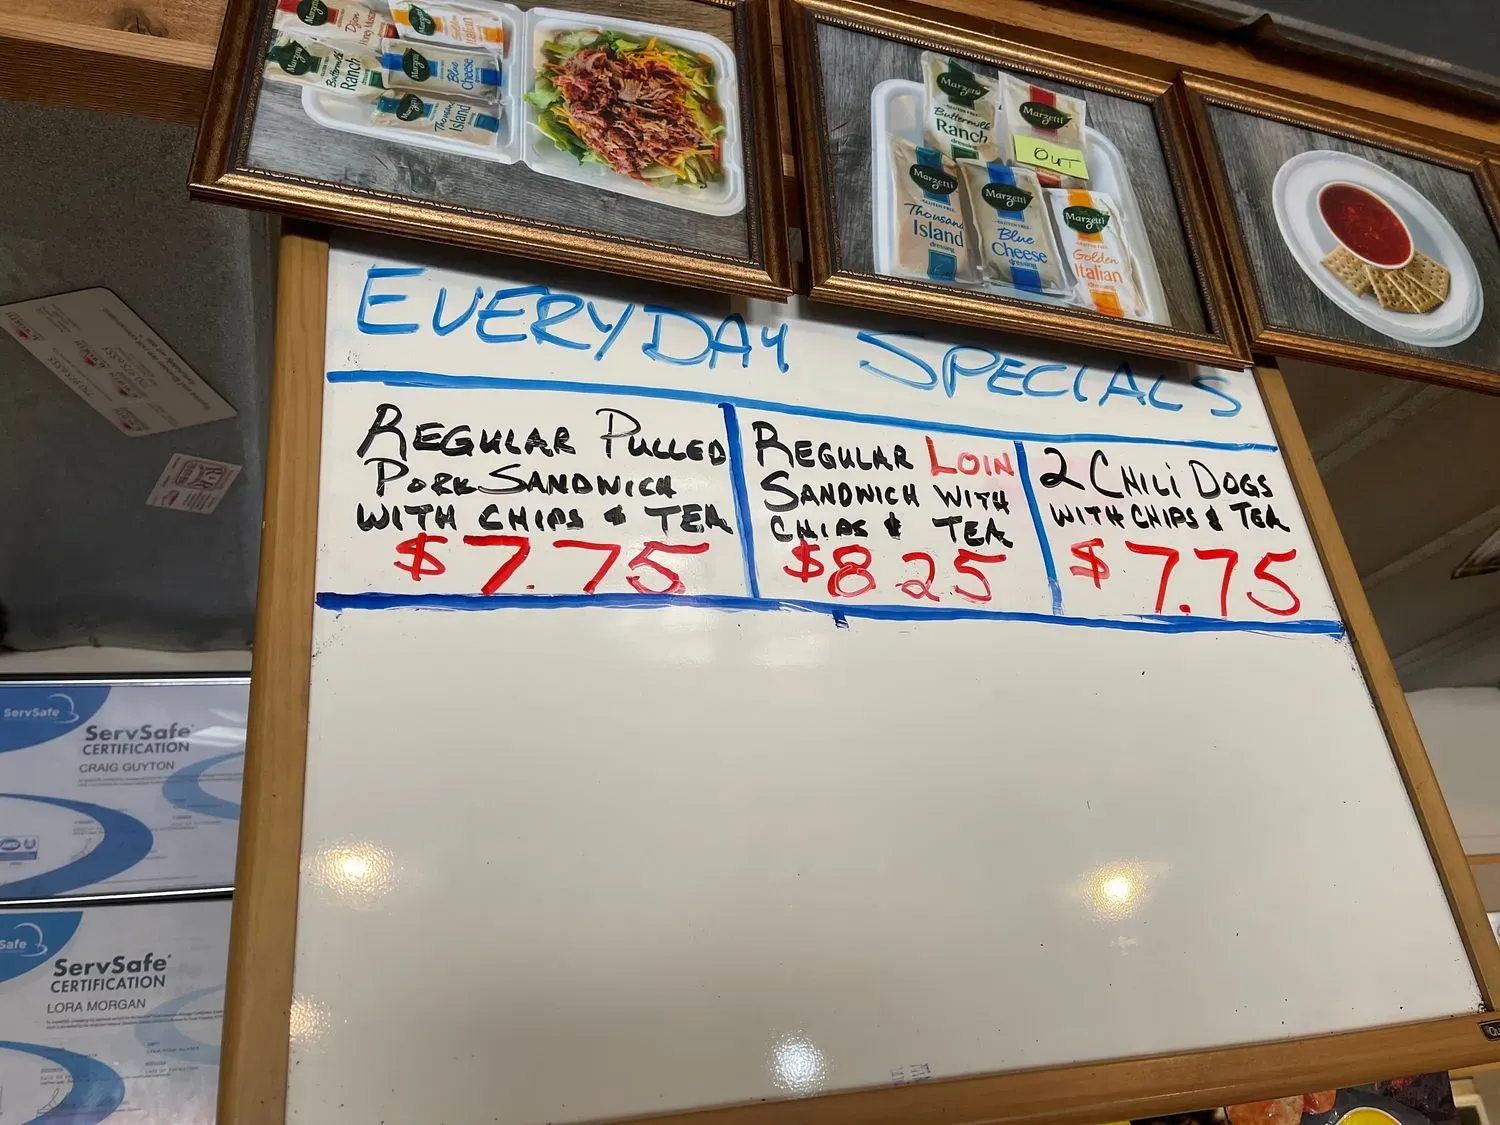 Marzetti
Dijon
Honey Mustard
Marzetti
Golden
Italian
Marzetti
Buttermilk
Ranch
Marzetti
Blue
Cheese
Marzetti
Thousand
Island
Marzetti
Buttermilk
Ranch
dressing
Marzetti
OUT
Marzetti
Thousand
Island
dressing
Marzetti
Blue
Cheese
dressing
Marzetti
Golden
Italian
EVERYDAY SPECIALS
REGULAR PULLED
PORK SANDWICH
WITH CHIPS & TEA
$7.75
REGULAR LOIN
SANDWICH WITH
CHIPS & TEA
$8 25
2 CHILI DOGS
WITH CHIPS & TEA
$7.75
ServSafe
ServSafe
CERTIFICATION
CRAIG GUYTON
Safe
ServSafe
CERTIFICATION
LORA MORGAN